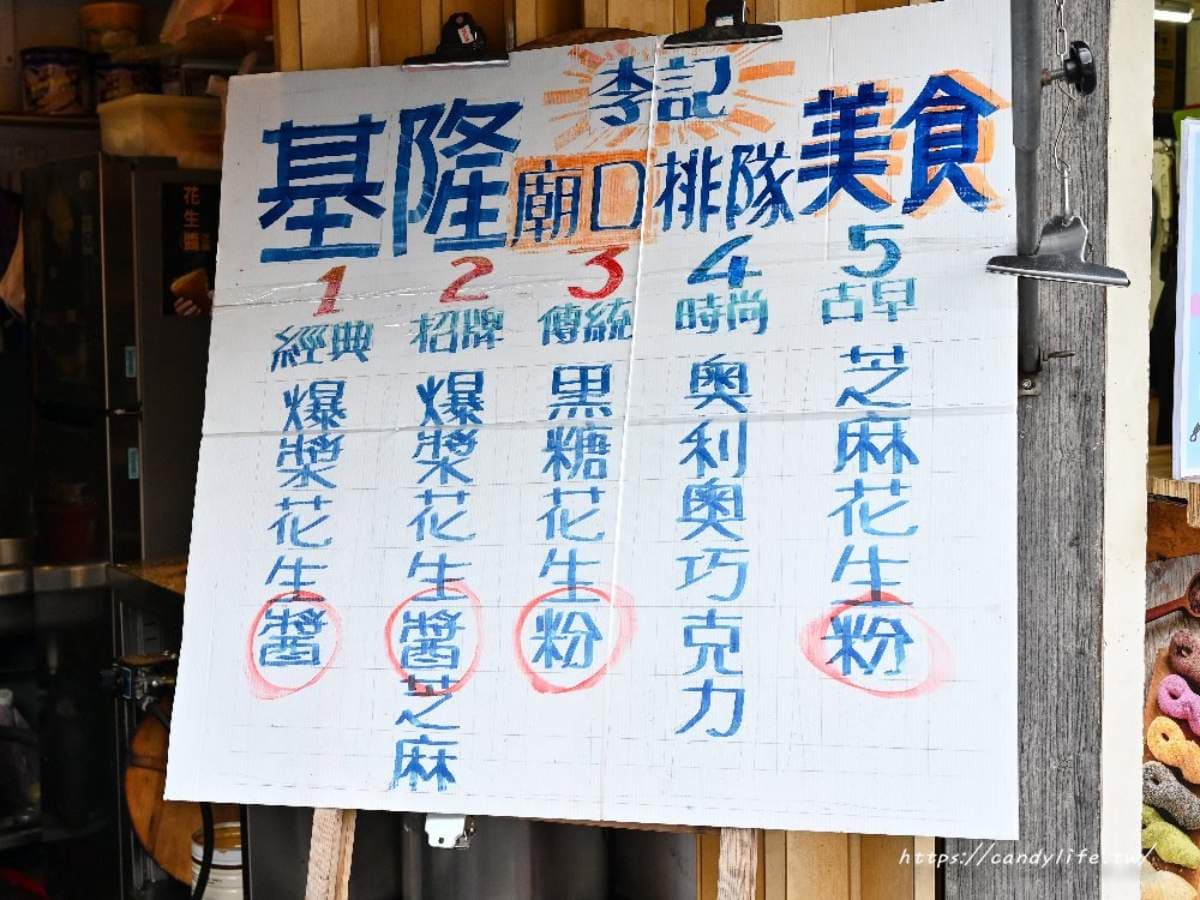 李記
基隆廟口排隊美食
1
經典
爆漿花生醬
2
招牌
爆漿花生醬芝麻
3
傳統
黑糖花生粉
4
時尚
奧利奧巧克力
5
古早
芝麻花生粉
花生醬
https://candylife.tw/